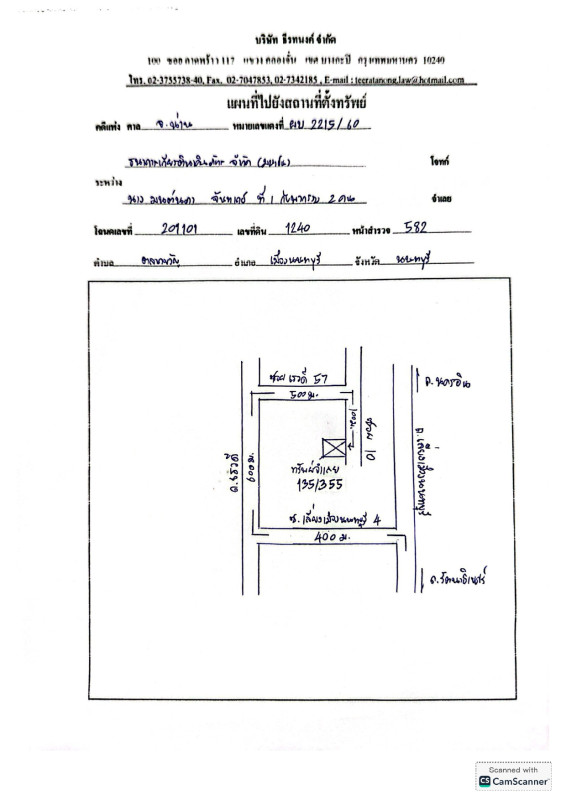 บริษัท ธีรทนงค์ จำกัด
100 ซอยลาดพร้าว 117 แขวงคลองจั่น เขตบางกะปิ กรุงเทพมหานคร 10240
โทร. 02-3755738-40, Fax. 02-7047853, 02-7342185 , E-mail : teeratanong.law@hotmail.com
แผนที่ไปยังสถานที่ตั้งทรัพย์
คดีแพ่ง ศาล จ.น่าน หมายเลขแดงที่ ผบ 2215/60
ธนาคารเกียรตินาคิน จำกัด (มหาชน) โจทก์
ระหว่าง
นาง ที่ 1 กับพวกรวม 2 คน จำเลย
โฉนดเลขที่ 201101 เลขที่ดิน 1240 หน้าสำรวจ 582
ตำบล ตลาดขวัญ อำเภอ เมืองนนทบุรี จังหวัด นนทบุรี
ซอย เรวดี 57
500 ม.
ถ.นครอินทร์
100 ม.
ซอย 10
ถ.เรวดี
600 ม.
ทรัพย์จำเลย
135/355
ถ.เลี่ยงเมืองนนทบุรี
ซ. เลี่ยงเมืองนนทบุรี 4
400 ม.
ถ.รัตนาธิเบศร์
Scanned with
CS CamScanner